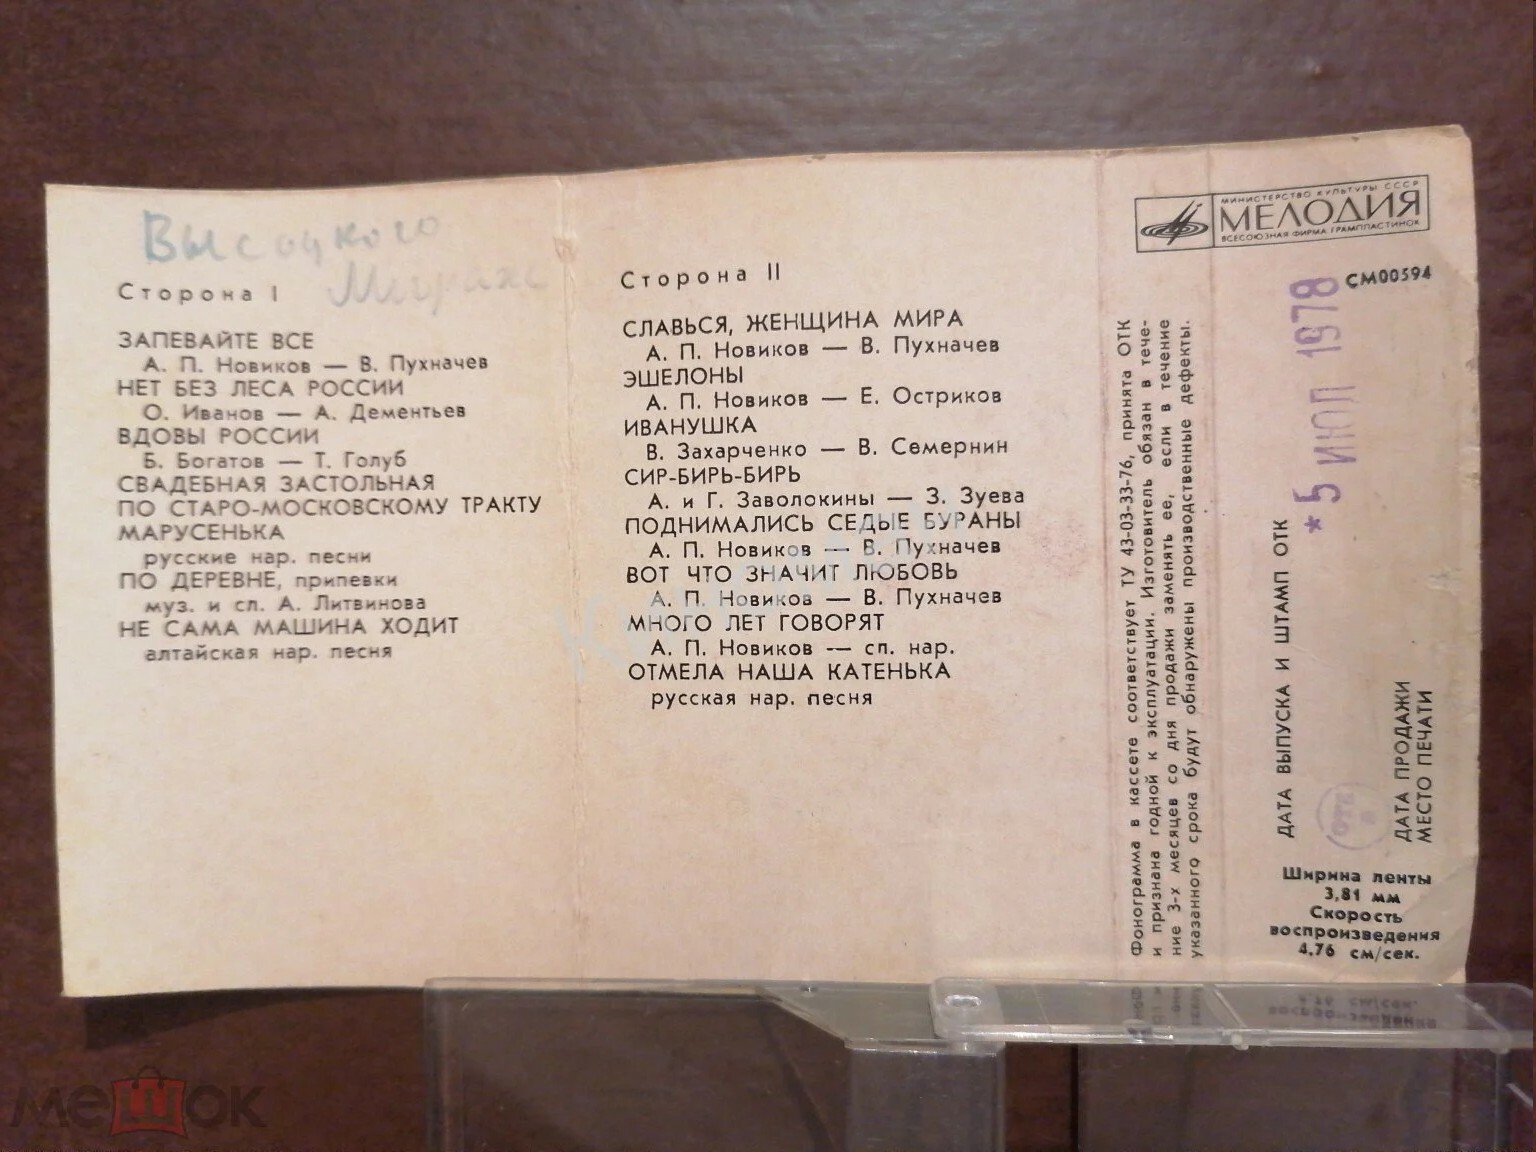 Высоцкого
Мираж
Сторона I
ЗАПЕВАЙТЕ ВСЕ
А. П. Новиков — В. Пухначев
НЕТ БЕЗ ЛЕСА РОССИИ
О. Иванов — А. Дементьев
ВДОВЫ РОССИИ
Б. Богатов — Т. Голуб
СВАДЕБНАЯ ЗАСТОЛЬНАЯ
ПО СТАРО-МОСКОВСКОМУ ТРАКТУ
МАРУСЕНЬКА
русские нар. песни
ПО ДЕРЕВНЕ, припевки
муз. и сл. А. Литвинова
НЕ САМА МАШИНА ХОДИТ
алтайская нар. песня
Сторона II
СЛАВЬСЯ, ЖЕНЩИНА МИРА
А. П. Новиков — В. Пухначев
ЭШЕЛОНЫ
А. П. Новиков — Е. Остриков
ИВАНУШКА
В. Захарченко — В. Семернин
СИР-БИРЬ-БИРЬ
А. и Г. Заволокины — З. Зуева
ПОДНИМАЛИСЬ СЕДЫЕ БУРАНЫ
А. П. Новиков — В. Пухначев
ВОТ ЧТО ЗНАЧИТ ЛЮБОВЬ
А. П. Новиков — В. Пухначев
МНОГО ЛЕТ ГОВОРЯТ
А. П. Новиков — сл. нар.
ОТМЕЛА НАША КАТЕНЬКА
русская нар. песня
Фонограмма в кассете соответствует ТУ 43-03-33-76, принята ОТК
и признана годной к эксплуатации. Изготовитель обязан в тече-
ние 3-х месяцев со дня продажи заменять ее, если в течение
указанного срока будут обнаружены производственные дефекты.
МИНИСТЕРСТВО КУЛЬТУРЫ СССР
МЕЛОДИЯ
ВСЕСОЮЗНАЯ ФИРМА ГРАМПЛАСТИНОК
СМ00594
ДАТА ВЫПУСКА И ШТАМП ОТК
* 5 ИЮЛ 1978
ОТК
ДАТА ПРОДАЖИ
МЕСТО ПЕЧАТИ
Ширина ленты
3,81 мм
Скорость
воспроизведения
4,76 см/сек.
мешок